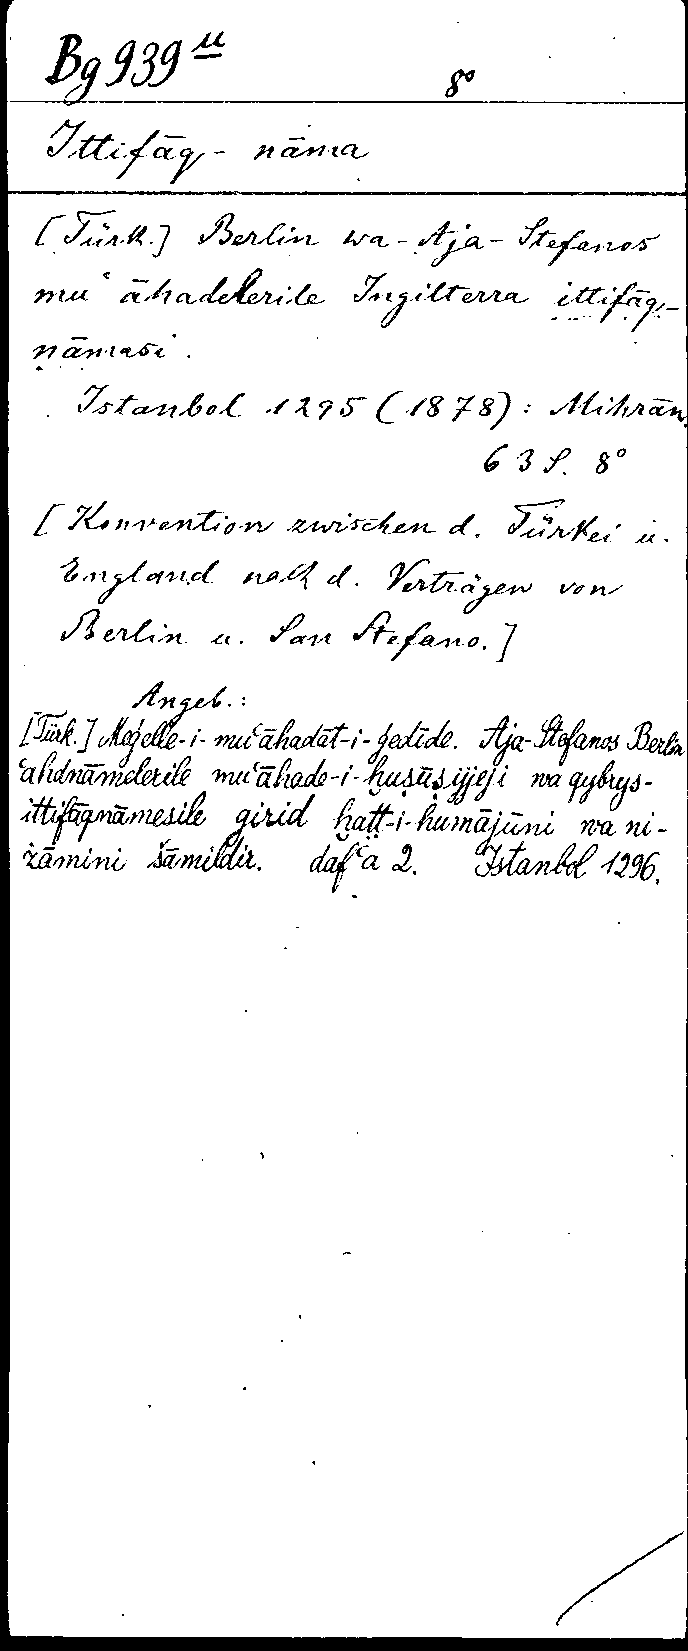 Bg 939 u
8°
Ittifāq-nāma
[Türk.] Berlin wa-Aja-Stefanos
muʿāhadelerile Ingilterra ittifāq-
nāmasi.
Istanbol 1295 (1878): Mihrān.
63 S. 8°
[Konvention zwischen d. Türkei u.
England nach d. Verträgen von
Berlin u. San Stefano.]
Angeb.:
[Türk.] Meǵelle-i-muʿāhadāt-i-ǵedīde. Aja-Stefanos Berlin
ʿahdnāmelerile muʿāhade-i-ḫuṣūṣijjeji wa qybrys-
ittifāqnāmesile girid ḫaṭṭ-i-humājūni wa ni-
żāmini šāmildir. dafʿa 2. Istanbol 1296.